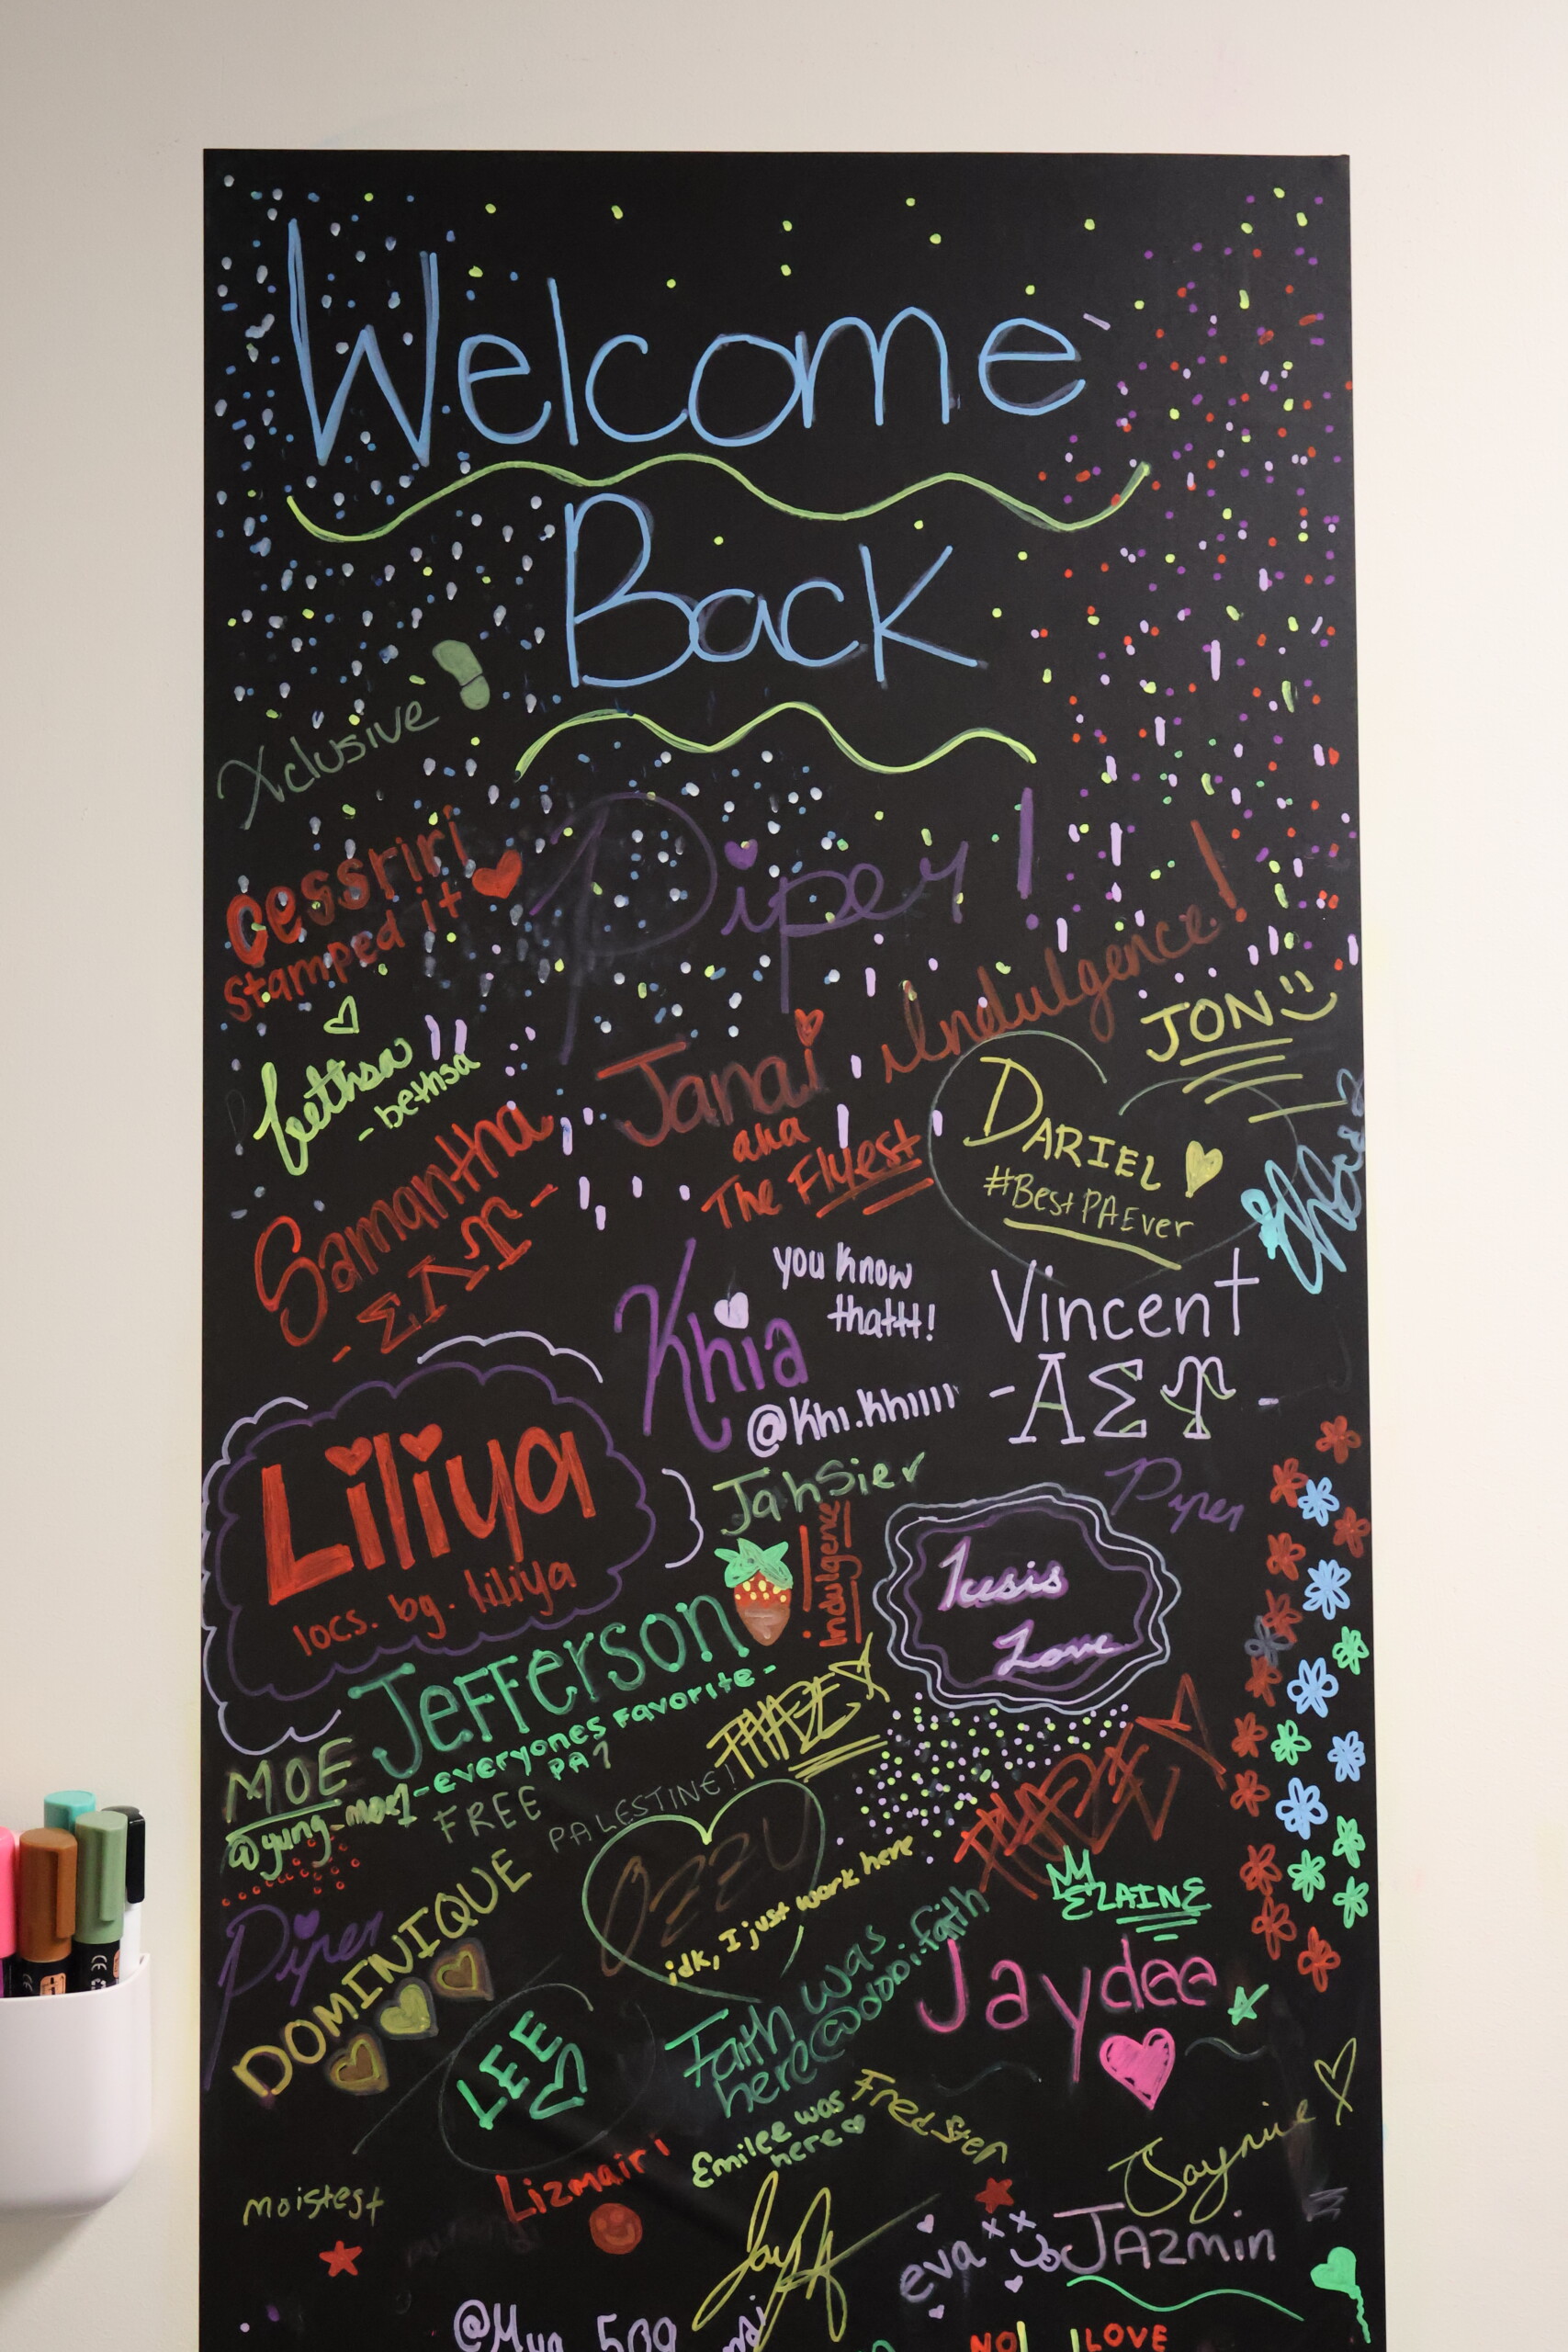 Welcome
Back
Xclusive
Piper!
cessriri
stamped it
Indulgence!
JON
bethsa
-bethsa
Janai
aka
The Flyest
DARIEL
#BestPAEver
Samantha
- ΣΛΥ -
you know
thattt!
Khia
@khi.khiiii
Vincent
-ΛΣΥ-
Liliya
locs. bg. liliya
Jahsier
Piper
Indulgence
Love
Jefferson
-everyones favorite-
PA
MOE
@yung_moe1
FREE PALESTINE!
PHAZE
OZZY
idk, I just work here
ELAINE
Piper
DOMINIQUE
LEE
Faith was
here@obbi.faith
Jaydee
Emilee was
here
Fredsten
Jaynie
moistest
Lizmairi
eva
JAZmin
@Mya 509
NO
LOVE